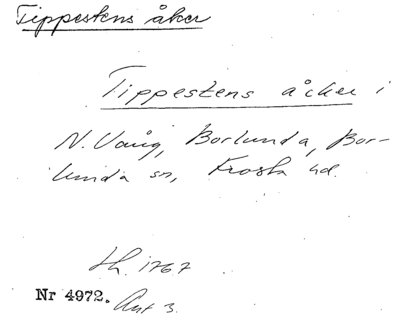 Tippestens åker
Tippestens åcker i
N. Vång, Borlunda, Bor-
lunda sn, Frosta hd.
Lh. 1767
Nr 4972. Akt 3.